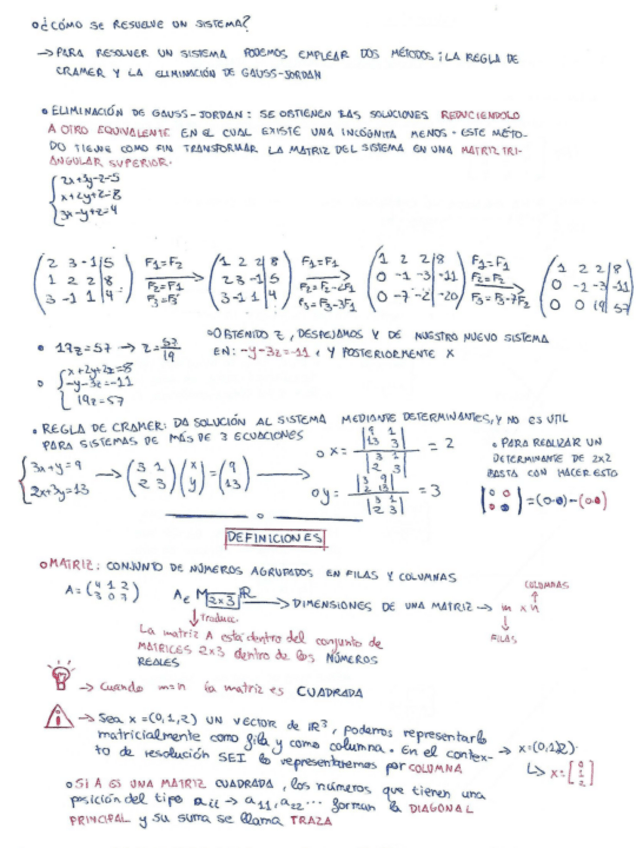 ¿CÓMO SE RESUELVE UN SISTEMA?
→ PARA RESOLVER UN SISTEMA PODEMOS EMPLEAR DOS MÉTODOS: LA REGLA DE
CRAMER Y LA ELIMINACIÓN DE GAUSS-JORDAN
• ELIMINACIÓN DE GAUSS-JORDAN: SE OBTIENEN LAS SOLUCIONES REDUCIÉNDOLO
A OTRO EQUIVALENTE EN EL CUAL EXISTE UNA INCÓGNITA MENOS. ESTE MÉTO-
DO TIENE COMO FIN TRANSFORMAR LA MATRIZ DEL SISTEMA EN UNA MATRIZ TRI-
ANGULAR SUPERIOR.
2x+3y-z=5
x+2y+2z=8
3x-y+z=4
(2 3 -1|5 F1=F2 (1 2 2|8 F1=F1 (1 2 2|8 F1=F1 (1 2 2|8
1 2 2|8 F2=F1 → 2 3 -1|5 F2=F2-2F1 → 0 -1 -3|-11 F2=F2 → 0 -1 -3|-11
3 -1 1|4) F3=F3 3 -1 1|4) F3=F3-3F1 0 -7 -2|-20) F3=F3-7F2 0 0 19|57)
• 19z=57 → z=57/19
○ OBTENIDO Z, DESPEJAMOS Y DE NUESTRO NUEVO SISTEMA
EN: -y-3z=-11, Y POSTERIORMENTE X
x+2y+2z=8
-y-3z=-11
19z=57
• REGLA DE CRAMER: DA SOLUCIÓN AL SISTEMA MEDIANTE DETERMINANTES, Y NO ES UTIL
PARA SISTEMAS DE MÁS DE 3 ECUACIONES
3x+y=9
2x+3y=13
→ (3 1, 2 3)(x, y)=(9, 13) →
x= |9 1, 13 3| / |3 1, 2 3| = 2
y= |3 9, 2 13| / |3 1, 2 3| = 3
• PARA REALIZAR UN
DETERMINANTE DE 2X2
BASTA CON HACER ESTO
DEFINICIONES
○ MATRIZ: CONJUNTO DE NÚMEROS AGRUPADOS EN FILAS Y COLUMNAS
A=(4 1 2, 3 0 7) A∈M2x3 ℝ → DIMENSIONES DE UNA MATRIZ → m x n
COLUMNAS
FILAS
Traduce.
La matriz A está dentro del conjunto de
MATRICES 2x3 dentro de los NÚMEROS
REALES
→ Cuando m=n la matriz es CUADRADA
→ Sea x=(0,1,2) UN VECTOR de ℝ³, podemos representarlo
matricialmente como fila y como columna. En el contex-
to de resolución SEL lo representaremos por COLUMNA
→ x=(0,1,2).
↳ x=[0 1 2]
○ SI A ES UNA MATRIZ CUADRADA, los números que tienen una
posición del tipo aii → a11, a22 ... forman la DIAGONAL
PRINCIPAL y su suma se llama TRAZA